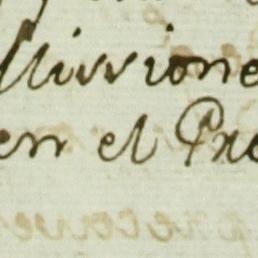 Missione
en el Pre